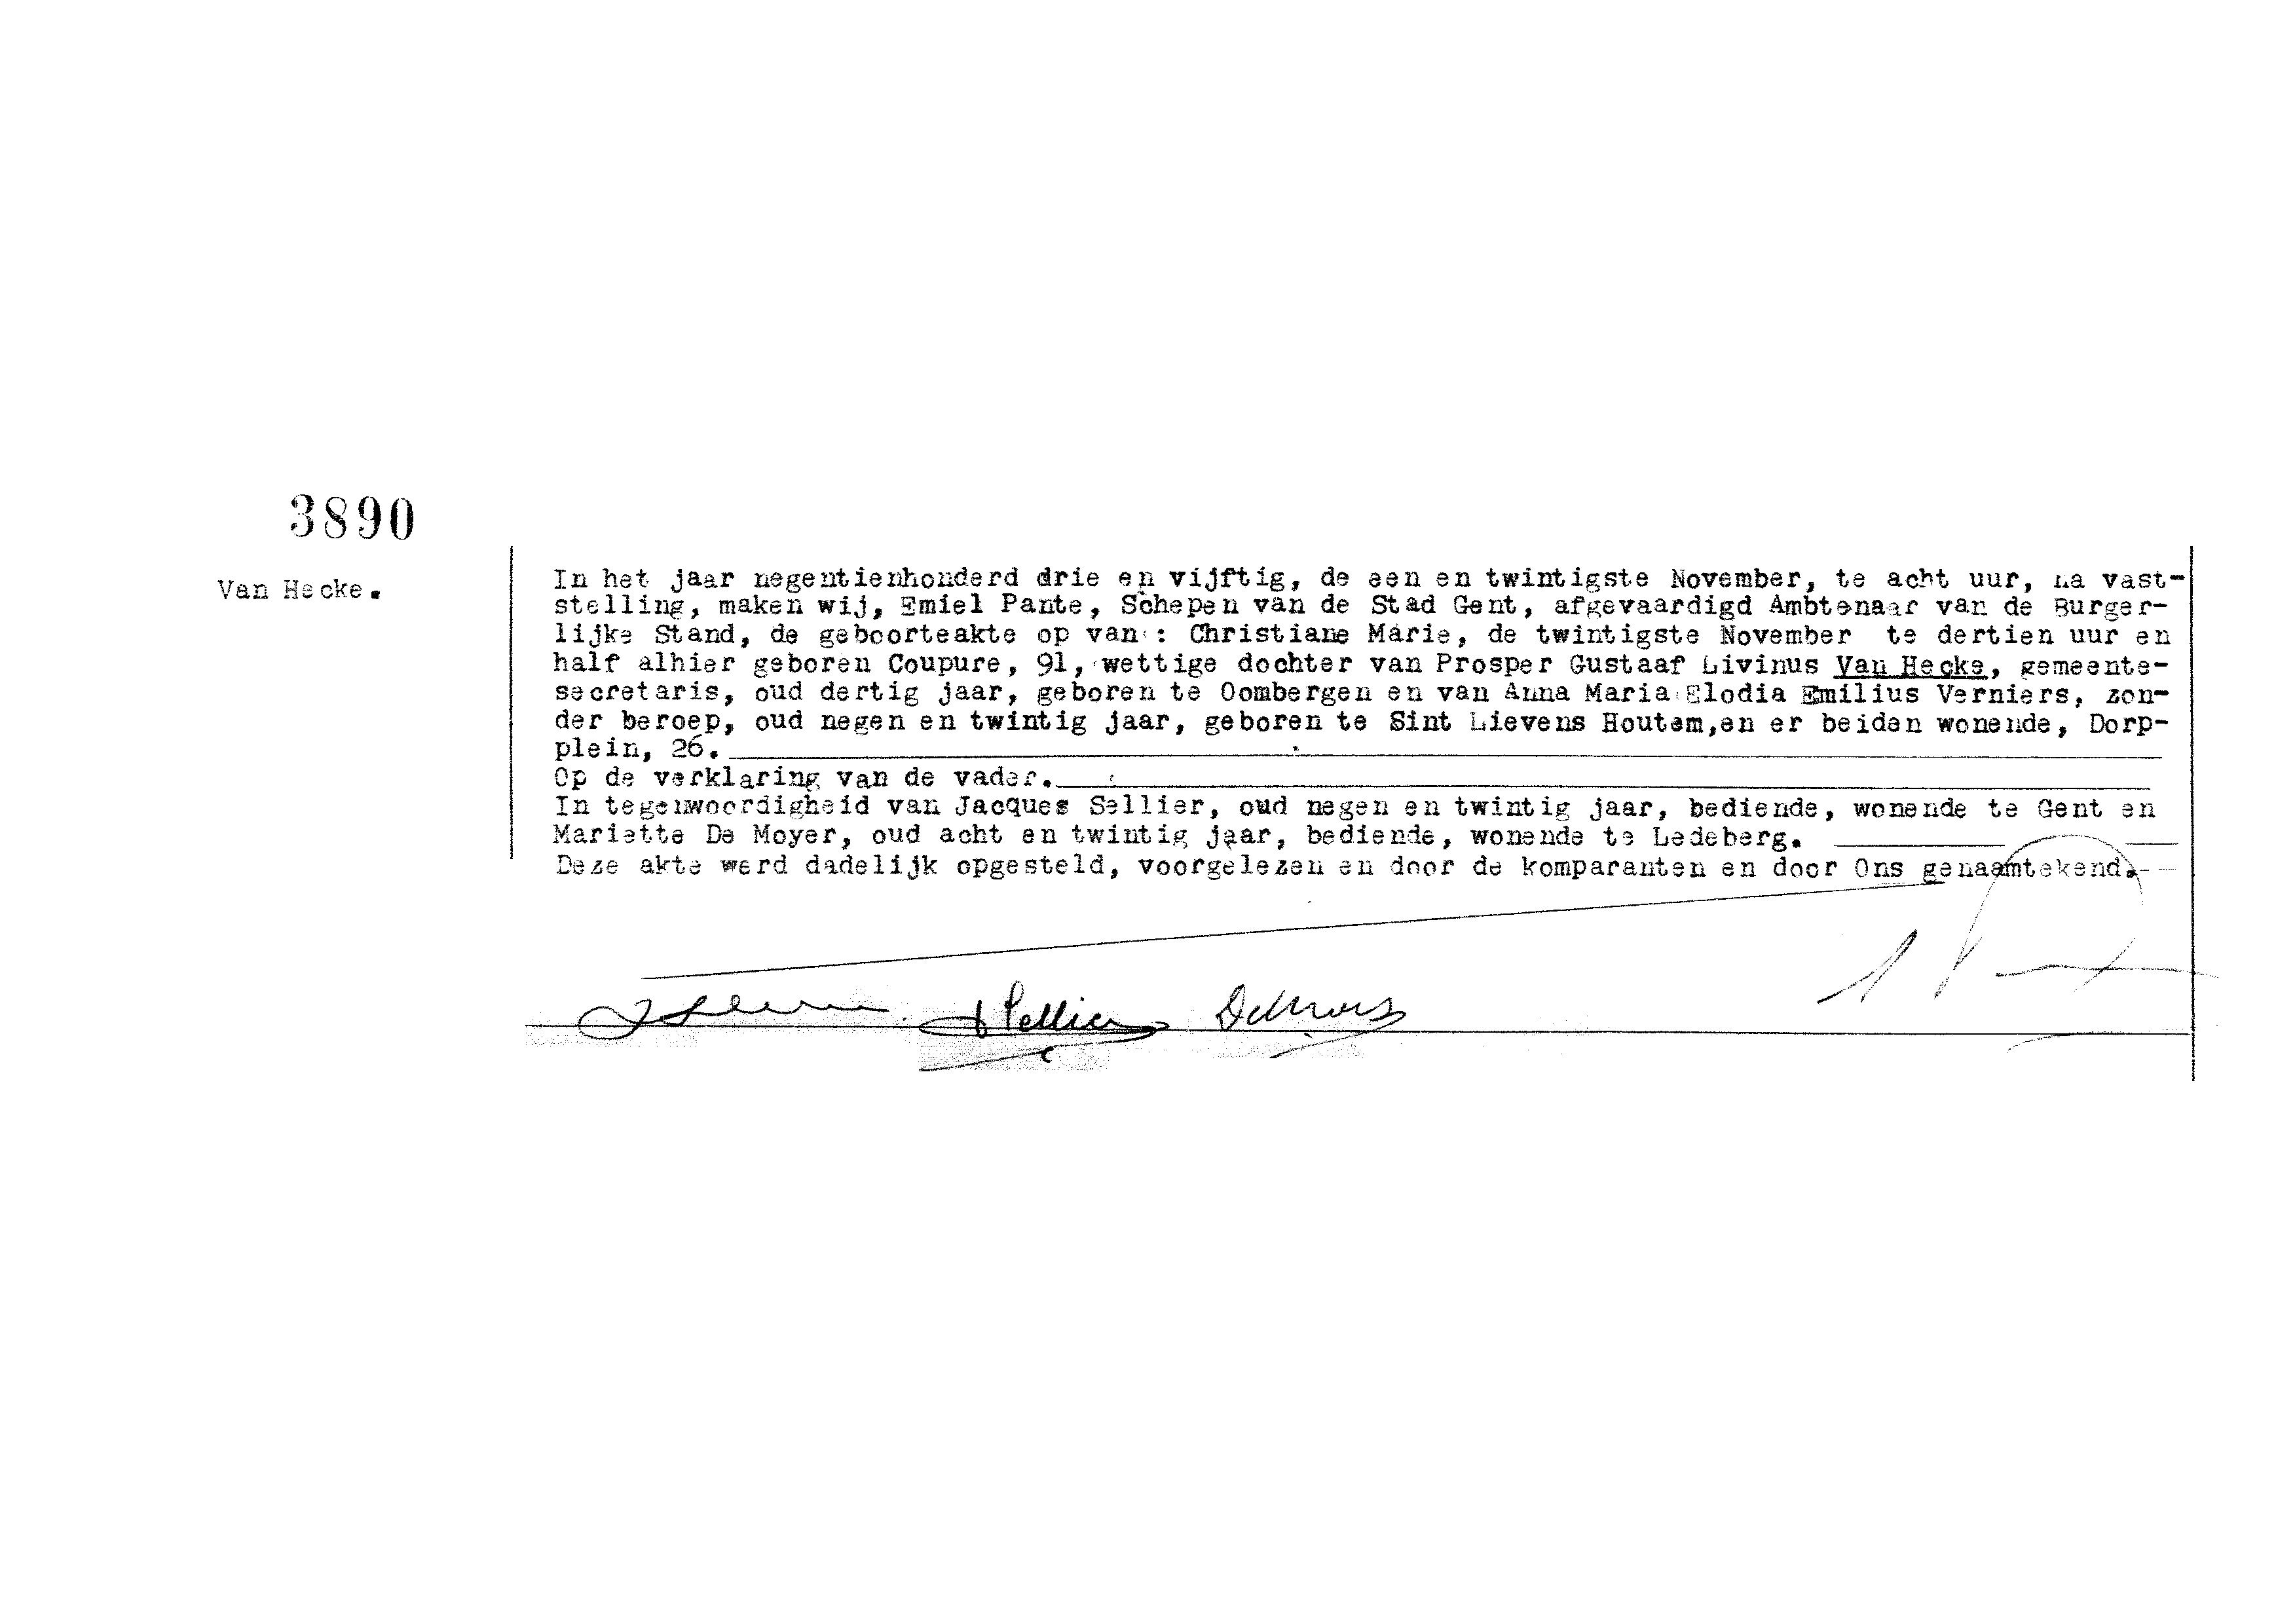 3890
Van Hecke.
In het jaar negentienhonderd drie en vijftig, de een en twintigste November, te acht uur, na vast-
stelling, maken wij, Emiel Pante, Schepen van de Stad Gent, afgevaardigd Ambtenaar van de Burger-
lijke Stand, de geboorteakte op van : Christiane Marie, de twintigste November te dertien uur en
half alhier geboren Coupure, 91, wettige dochter van Prosper Gustaaf Livinus Van Hecke, gemeente-
secretaris, oud dertig jaar, geboren te Oombergen en van Anna Maria Elodia Emilius Verniers, zon-
der beroep, oud negen en twintig jaar, geboren te Sint Lievens Houtem,en er beiden wonende, Dorp-
plein, 26.
Op de verklaring van de vader.
In tegenwoordigheid van Jacques Sellier, oud negen en twintig jaar, bediende, wonende te Gent en
Mariette De Moyer, oud acht en twintig jaar, bediende, wonende te Ledeberg.
Deze akte werd dadelijk opgesteld, voorgelezen en door de komparanten en door Ons genaamtekend.